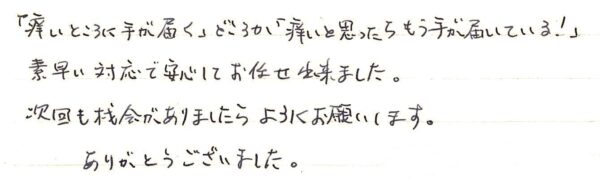 「痒いところに手が届く」どころか「痒いと思ったらもう手が届いている!」
素早い対応で安心してお任せ出来ました。
次回も機会がありましたらよろしくお願いします。
ありがとうございました。